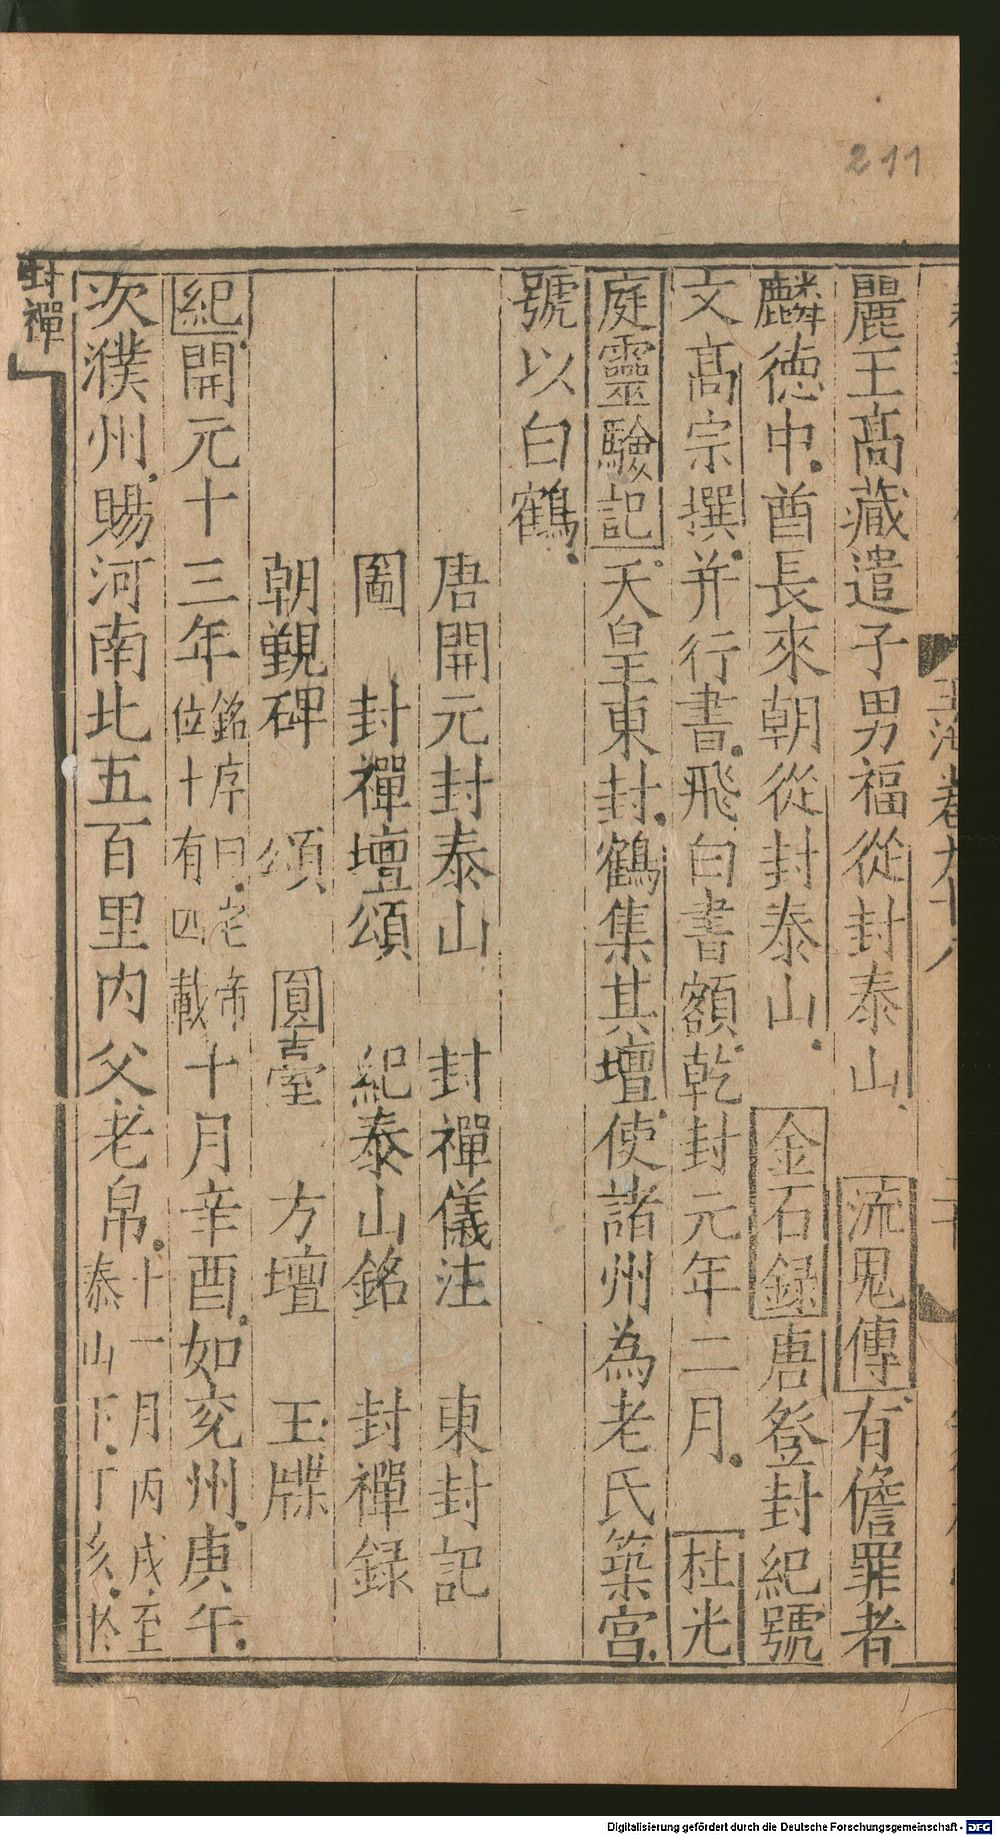 211
麗王髙藏遣子男福從封泰山流鬼傳有儋罪者
麟徳中酋長來朝從封泰山金石録唐登封紀號
文髙宗撰并行書飛白書額乾封元年二月杜光
庭靈驗記天皇東封鶴集其壇使諸州為老氏築宫
號以白鶴
唐開元封泰山 封禪儀注 東封記
圖 封禪壇頌 紀泰山銘 封禪録
朝覲碑 頌 圓臺 方壇 玉牒
紀開元十三年銘序曰老帝位十有四載十月辛酉如兖州庚午
次濮州賜河南北五百里内父老帛十一月丙戌至泰山下丁亥於
封禪
玉海卷九十八
Digitalisierung gefördert durch die Deutsche Forschungsgemeinschaft - DFG